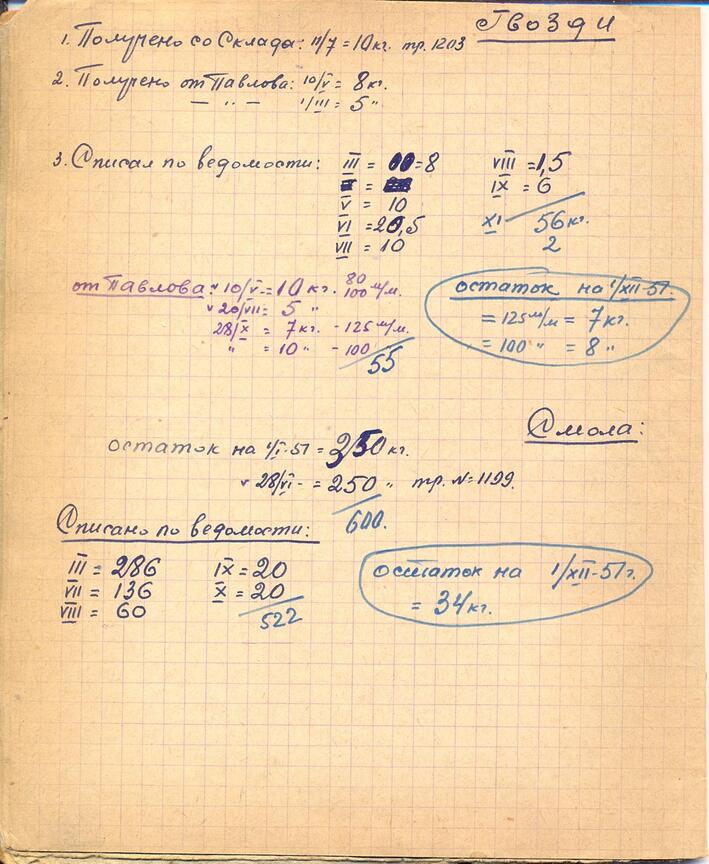 Гвозди
1. Получено со Склада: 11/7 = 10 кг. тр. 1203
2. Получено от Павлова: 10/V = 8 кг.
— " — 1/III = 5 "
3. Списал по ведомости: III = 8 VIII = 1,5
IX = 6
V = 10
VI = 20,5 XI 56 кг.
VII = 10 2
от Павлова: v 10/V = 10 кг. 80 100 м/м.
v 20/VII = 5 "
28/X = 7 кг. - 125 м/м.
" = 10 " - 100 "
55
остаток на 1/XII-51.
= 125 м/м = 7 кг.
= 100 " = 8 "
Смола:
остаток на 1/I-51 = 350 кг.
v 28/VI - = 250 " тр. N = 1199.
600.
Списано по ведомости:
III = 286 IX = 20
VII = 136 X = 20
VIII = 60 522
остаток на 1/XII-51 г.
= 34 кг.